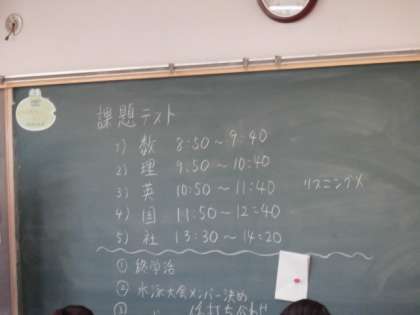 課題テスト
1) 数 8:50～9:40
2) 理 9:50～10:40
3) 英 10:50～11:40 リスニング×
4) 国 11:50～12:40
5) 社 13:30～14:20
① 終学活
② 水泳大会メンバー決め
③ 打ち合わせ